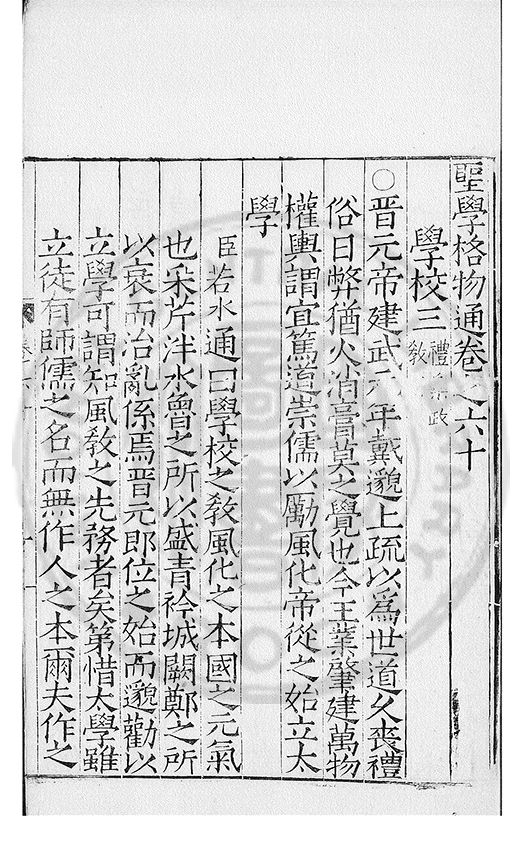 聖學格物通卷之六十
學校三 禮樂政教
○晋元帝建武元年戴邈上疏以爲世道久喪禮
俗日弊猶火消膏莫之覺也今王業肇建萬物
權輿謂宜篤道崇儒以勵風化帝從之始立太
學
臣若水通曰學校之敎風化之本國之元氣
也采芹泮水魯之所以盛青衿城闕鄭之所
以衰而治亂係焉晋元即位之始而邈勸以
立學可謂知風敎之先務者矣第惜太學雖
立徒有師儒之名而無作人之本爾夫作之